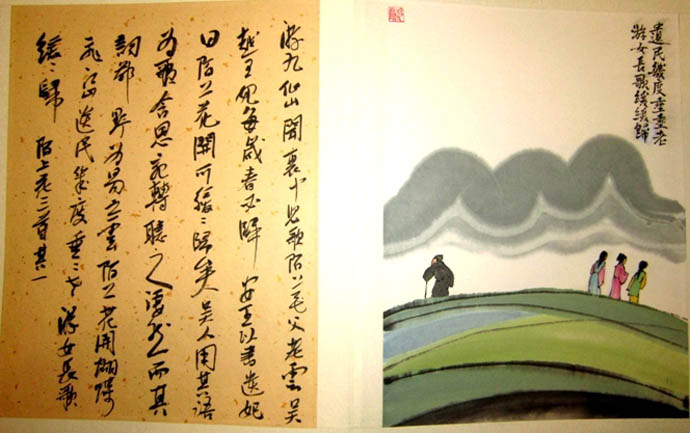 遺民幾度垂垂老
游女長歌緩緩歸
游九仙山聞裏中兒歌陌上花父老雲吴
越王妃每歲春必歸 王以書遺妃
曰陌上花開可緩々歸矣吴人用其語
為歌含思宛轉聽之淒然而其
詞鄙野為易之雲陌上花開蝴蝶
飛遺民幾度垂々老 游女長歌
緩々歸 陌上花三首其一